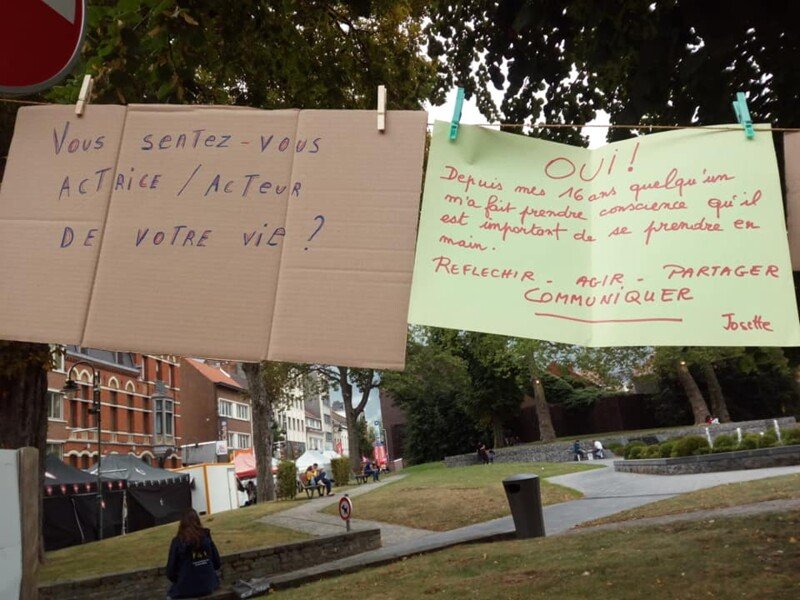 Vous sentez-vous
actrice / acteur
de votre vie ?
OUI !
Depuis mes 16 ans quelqu'un
m'a fait prendre conscience qu'il
est important de se prendre en
main.
REFLECHIR - AGIR - PARTAGER
COMMUNIQUER
Josette